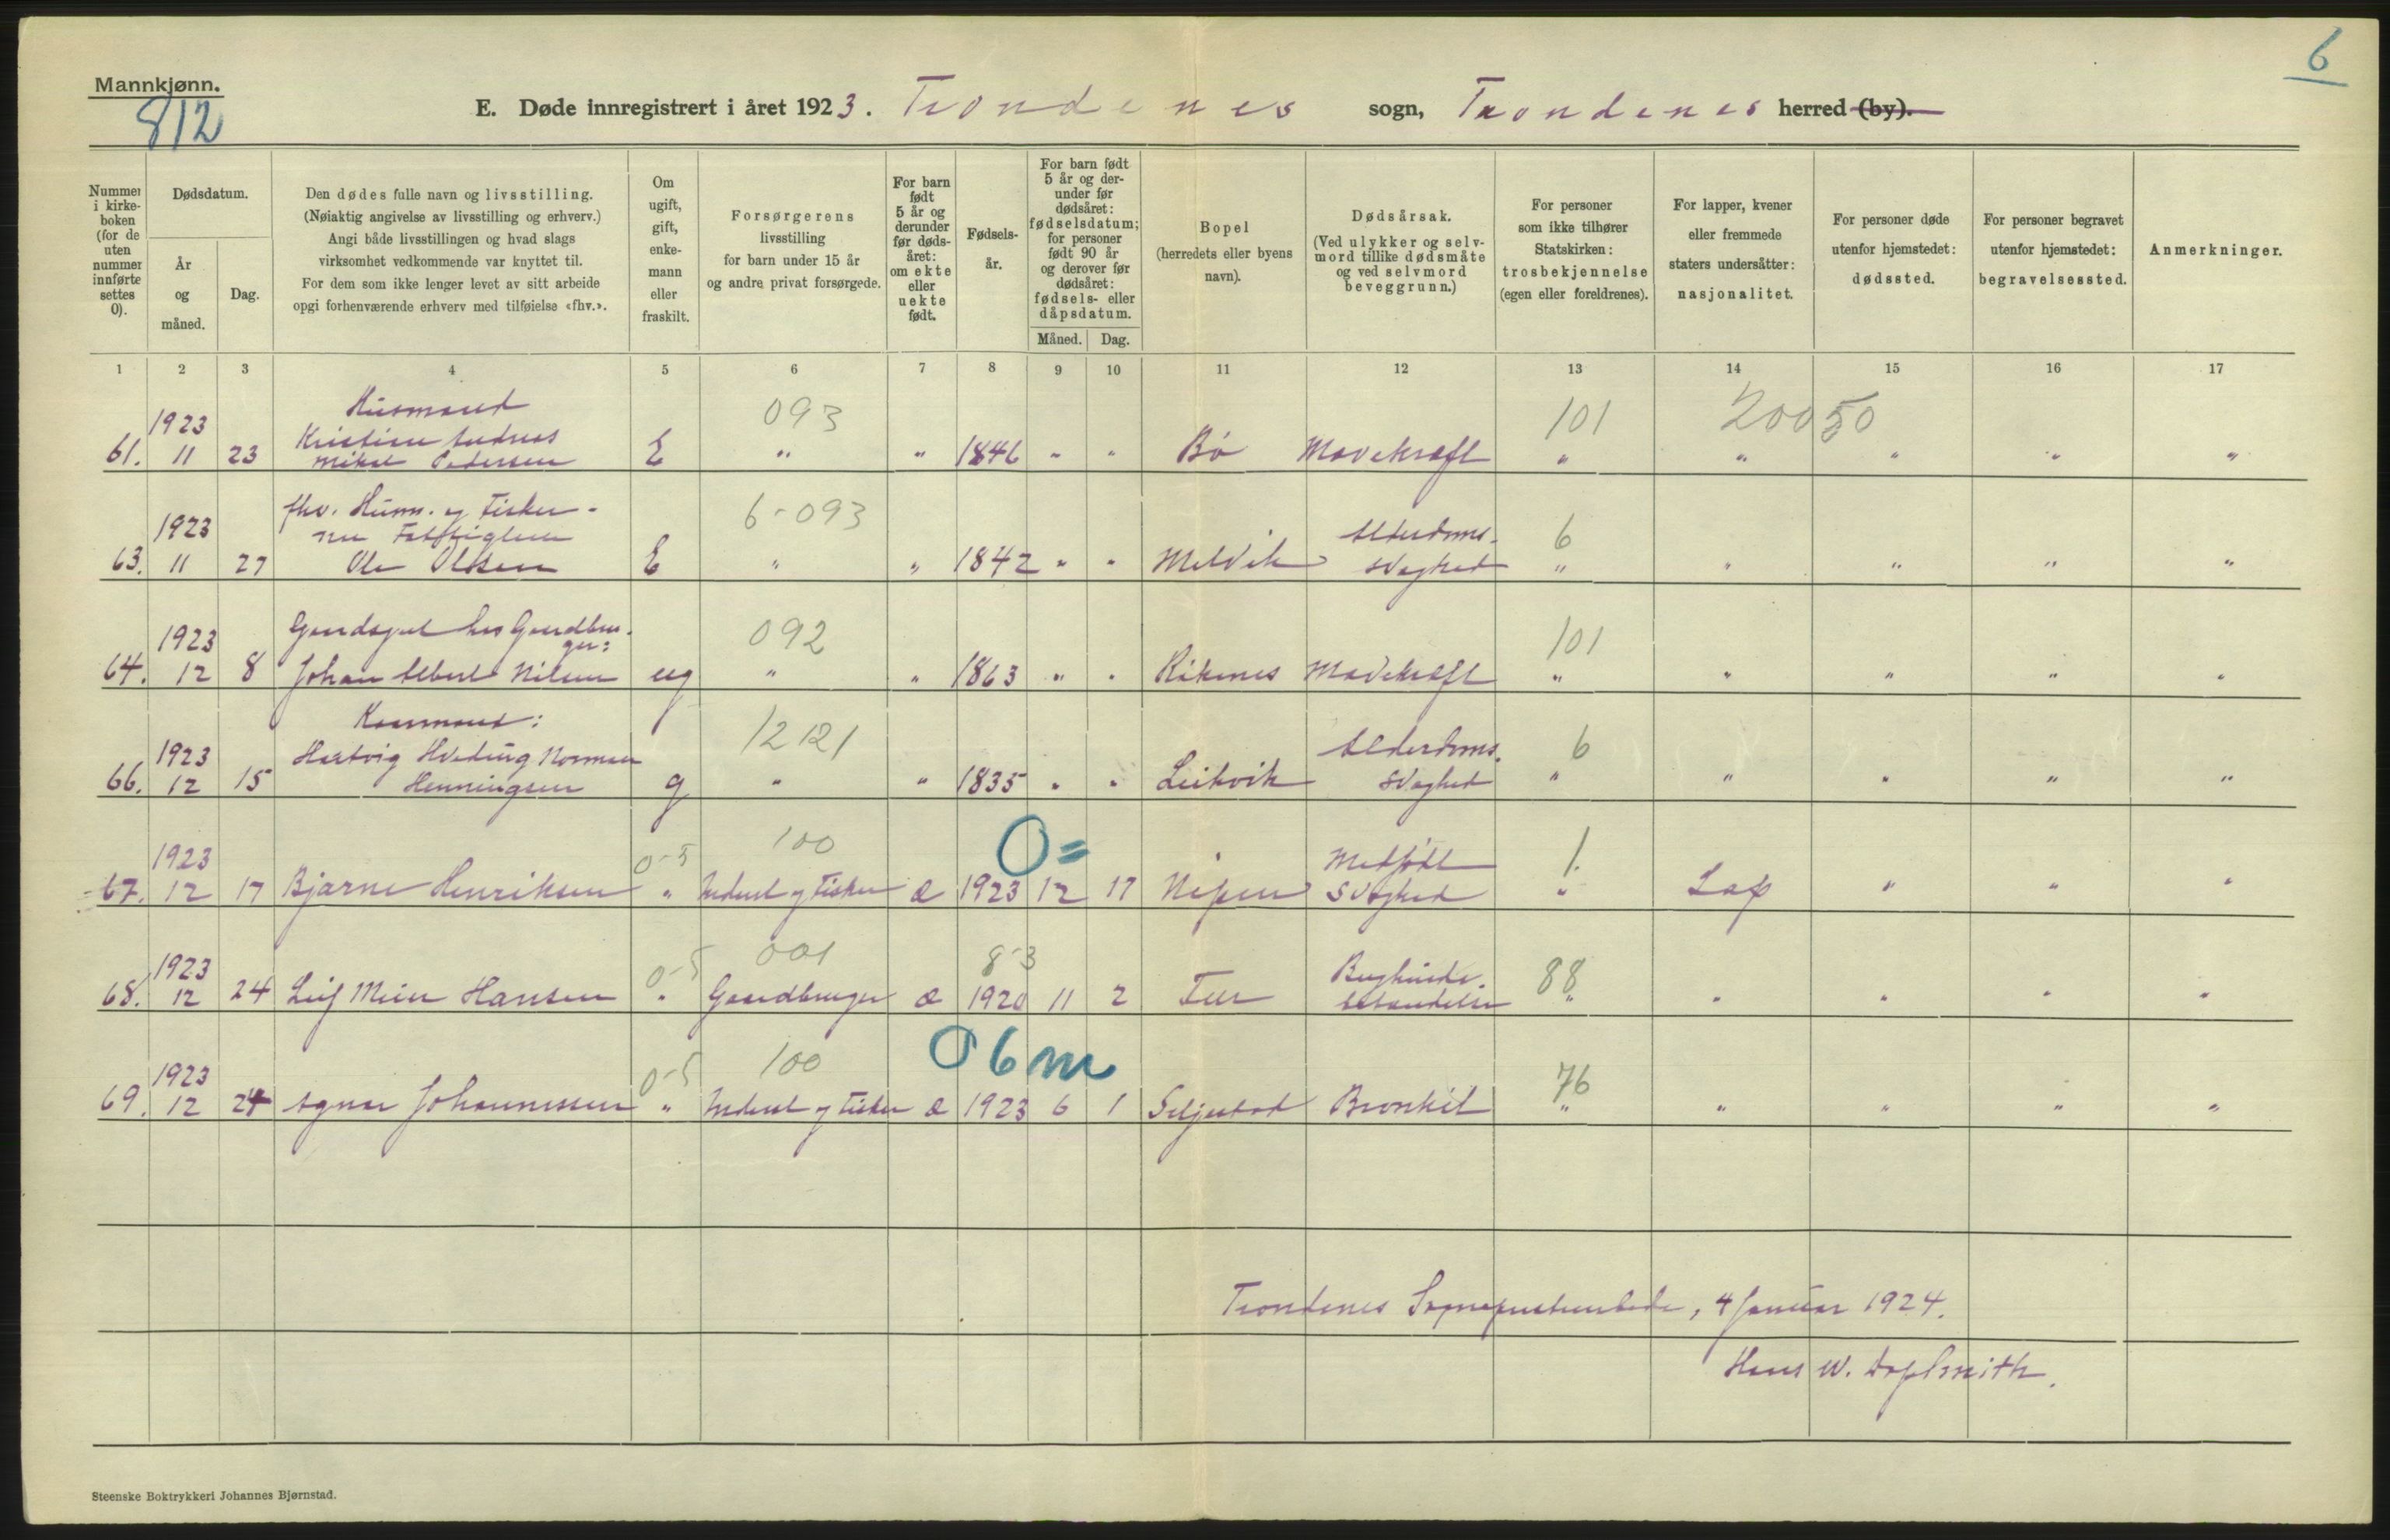 6
Mannkjønn.
812
E. Døde innregistrert i året 1923. Trondenes sogn, Trondenes herred (by).
Nummer i kirkeboken (for de uten nummer innførte settes 0).
Dødsdatum.
År og måned.
Dag.
Den dødes fulle navn og livsstilling.
(Nøiaktig angivelse av livsstilling og erhverv.)
Angi både livsstillingen og hvad slags
virksomhet vedkommende var knyttet til.
For dem som ikke lenger levet av sitt arbeide
opgi forhenværende erhverv med tilføielse «fhv.».
Om ugift, gift, enkemann eller fraskilt.
Forsørgerens
livsstilling
for barn under 15 år
og andre privat forsørgede.
For barn født 5 år og derunder før dødsåret: om ekte eller uekte født.
Fødselsår.
For barn født 5 år og derunder før dødsåret: fødselsdatum; for personer født 90 år og derover før dødsåret: fødsels- eller dåpsdatum.
Måned. Dag.
Bopel
(herredets eller byens
navn).
Dødsårsak.
(Ved ulykker og selvmord tillike dødsmåte og ved selvmord beveggrunn.)
For personer
som ikke tilhører
Statskirken:
trosbekjennelse
(egen eller foreldrenes).
For lapper, kvener
eller fremmede
staters undersåtter:
nasjonalitet.
For personer døde
utenfor hjemstedet:
dødssted.
For personer begravet
utenfor hjemstedet:
begravelsessted.
Anmerkninger.
1 2 3 4 5 6 7 8 9 10 11 12 13 14 15 16 17
Husmand 093 101 200 50
1923 Kristian Andreas
61. 11 23 Mikal Pedersen E " " 1846 " " Bø Mavekræft " " " " "
fhv. Husm. og Fisker - 6-093
1923 nu Fattiglem Alderdoms- 6
63. 11 27 Ole Olsen E " " 1842 " " Melvik svaghed " " " " "
Gaardsgut hos Gaardbru- 092 101
1923 ger:
64. 12 8 Johan Albert Nilsen ug " " 1863 " " Rikenes Mavekræft " " " " "
Kaarmand: 12 121
1923 Hartvig Hveding Norman Alderdoms- 6
66. 12 15 Henningsen g " " 1835 " " Leikvik svaghed " " " " "
0-5 100 0= 1.
1923 Medfødt
67. 12 17 Bjarne Henriksen " Inderst og Fisker æ 1923 12 17 Nipen Svaghed " Lap " " "
0-5 001 8-3 88
1923 Bughinde-
68. 12 24 Leif Meier Hansen " Gaardbruger æ 1920 11 2 betændelse " " " " "
0-5 100 0 6 m 76
1923
69. 12 24 Agnar Johannessen " Inderst og Fisker æ 1923 6 1 Seljestad Bronkit " " " " "
Trondenes Sogneprestembede, 4 Januar 1924.
Hans W.
Steenske Boktrykkeri Johannes Bjørnstad.